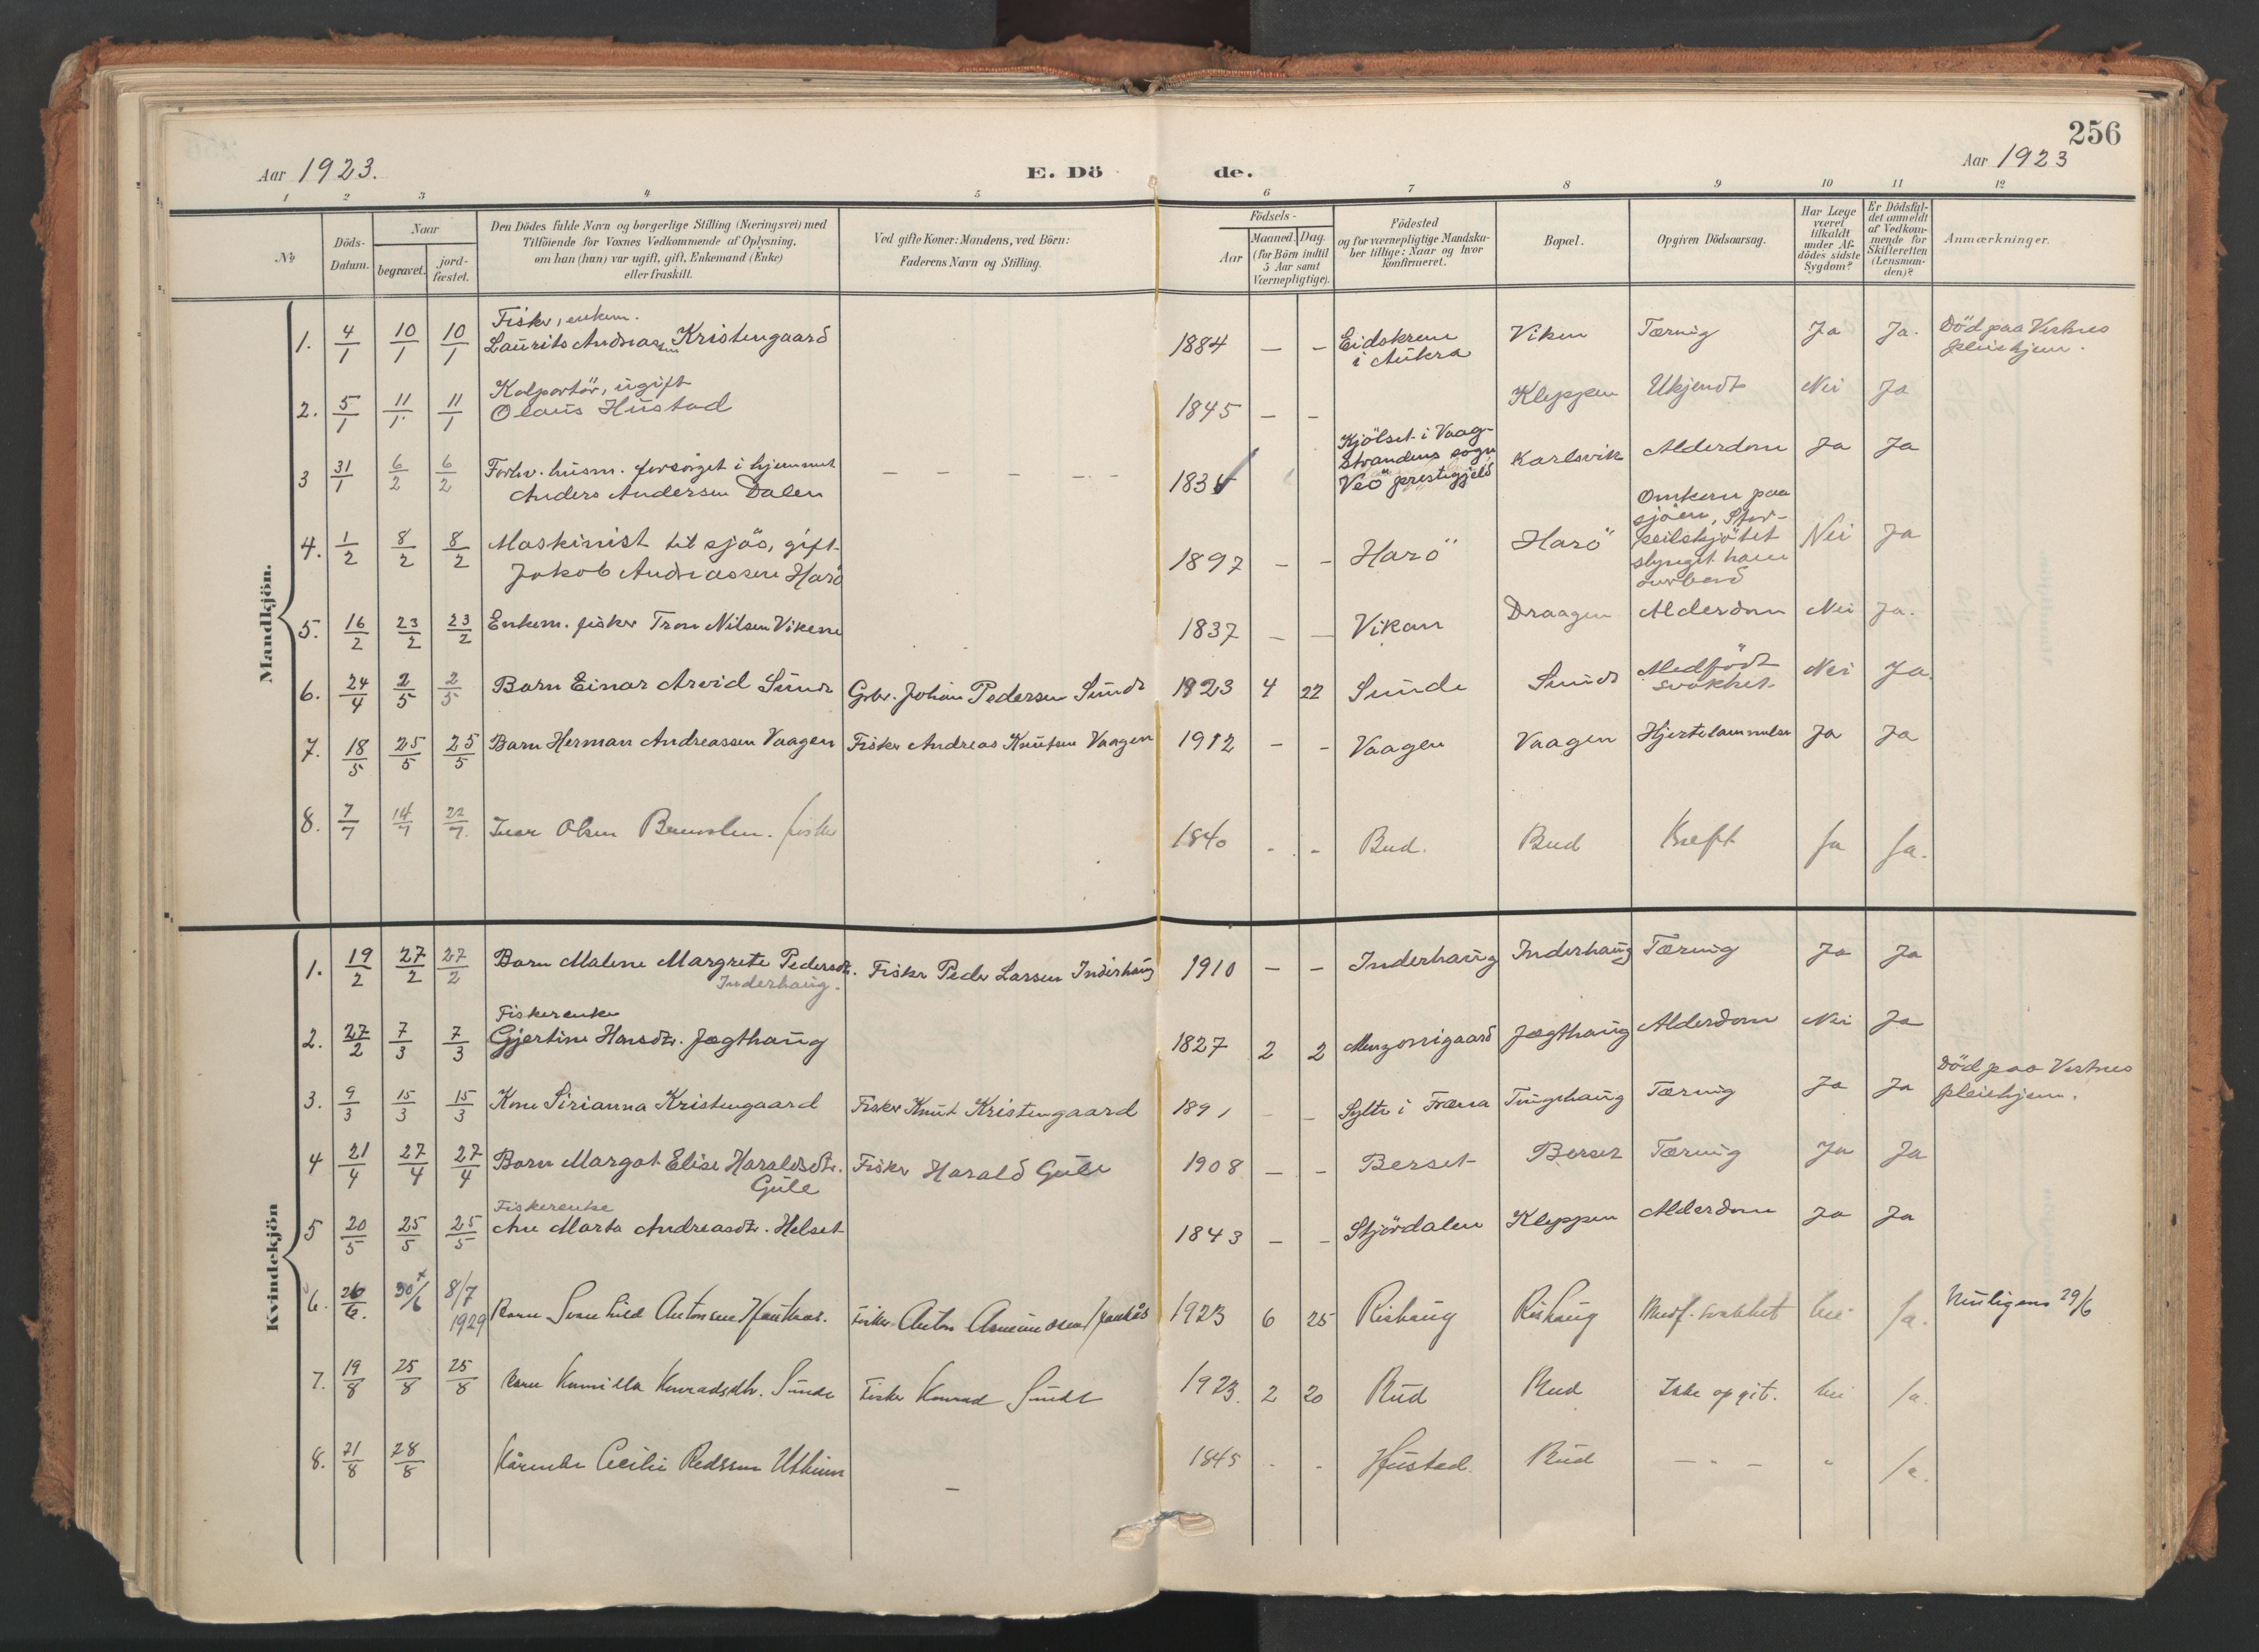 256
Aar 1923.
E. Dö de.
Aar 1923
1 2 3 4 5 6 7 8 9 10 11 12
No
Döds-
Datum.
Naar
begravet.
jord-
fæstet.
Den Dödes fulde Navn og borgerlige Stilling (Næringsvei) med
Tilföiende for Voxnes Vedkommende af Oplysning,
om han (hun) var ugift, gift, Enkemand (Enke)
eller fraskilt.
Ved gifte Koner: Mandens, ved Börn:
Faderens Navn og Stilling.
Födsels-
Aar
Maaned. Dag.
(for Börn indtil
5 Aar samt
Værnepligtige).
Födested
og for værnepligtige Mandska-
ber tillige: Naar og hvor
konfirmeret.
Bopæl.
Opgiven Dödsaarsag.
Har Læge
været
tilkaldt
under Af-
dödes sidste
Sygdom?
Er Dödsfal-
det anmeldt
af Vedkom-
mende for
Skifteretten
(Lensman-
den)?
Anmærkninger.
Mandkjön.
Fisker, enkem.
1. 4/1 10/1 10/1 Laurits Andreassen Kristengaard 1884 — — Eidskrem i Aukra Viken Tæring Ja Ja. Död paa Vestnes pleiehjem.
Kolportör, ugift
2. 5/1 11/1 11/1 Olaus Hustad 1845 — — Kleppen Ukjendt Nei Ja
3 31/1 6/2 6/2 Forhv. husm. forsörget i hjemmet
Anders Andersen Dalen — — — — — 183 Kjölset i Vaag-
strandens sogn
Veö prestegjeld Karlsvik Alderdom Ja Ja
4. 1/2 8/2 8/2 Maskinist til sjös, gift
Jakob Andreassen Harö 1897 — — Harö Harö Omkom paa
sjöen, Stor-
seilskjötet
slynget ham
overbord Nei Ja
5. 16/2 23/2 23/2 Enkem. fisker Tron Nilsen Vikene 1837 — — Vikan Draagen Alderdom Nei Ja.
6. 24/4 2/5 2/5 Barn Einar Arvid Sunde Grbr. Johan Pedersen Sunde 1923 4 22 Sunde Sunde Medfödt
svakhet Nei Ja.
7. 18/5 25/5 25/5 Barn Herman Andreassen Vaagen Fisker Andreas Knutsen Vaagen 1912 — — Vaagen Vaagen Hjertelammelse Ja Ja
8. 7/7 14/7 22/7. Ivar Olsen fisker 1840 - - Bud. Bud Kreft Ja Ja.
Kvindekjön
1. 19/2 27/2 27/2 Barn Malene Margrete Pedersdtr. Fisker Peder Larsen Inderhaug 1910 — — Inderhaug Inderhaug Tæring Ja Ja
Inderhaug.
Fiskerenke
2. 27/2 7/3 7/3 Gjertine Hansdtr. Jægthaug 1827 2 2 Jægthaug Alderdom Nei Ja
3. 9/3 15/3 15/3 Kone Sirianna Kristengaard Fisker Knut Kristengaard 1891 — — Sylte i Fræna Tungehaug Tæring Ja Ja Död paa Vestnes
pleiehjem.
4 21/4 27/4 27/4 Barn Margot Elise Haraldsdtr. Fisker Harald Gule 1908 — — Berset Berset Tæring Ja Ja
Gule
Fiskerenke
5 20/5 25/5 25/5 Ane Marta Andreasdtr. Helset 1843 — — Stjördalen Kleppen Alderdom Ja Ja
6. 26/6. 30/6 8/7 1929 Barn Svanhild Antonsen Fisker Anton 1923 6 25 Rishaug Rishaug Medf. svakhet Nei Ja. Muligens 29/6
7. 19/8 25/8 25/8 Barn Kamilla Konradsdtr. Sunde Fisker Konrad Sunde 1923. 2 20 Bud Bud Ikke opgit. Nei Ja.
8. 21/8 28/8 Kårenke Cecilie 1845 - - Hustad. Bud — " — " Ja.